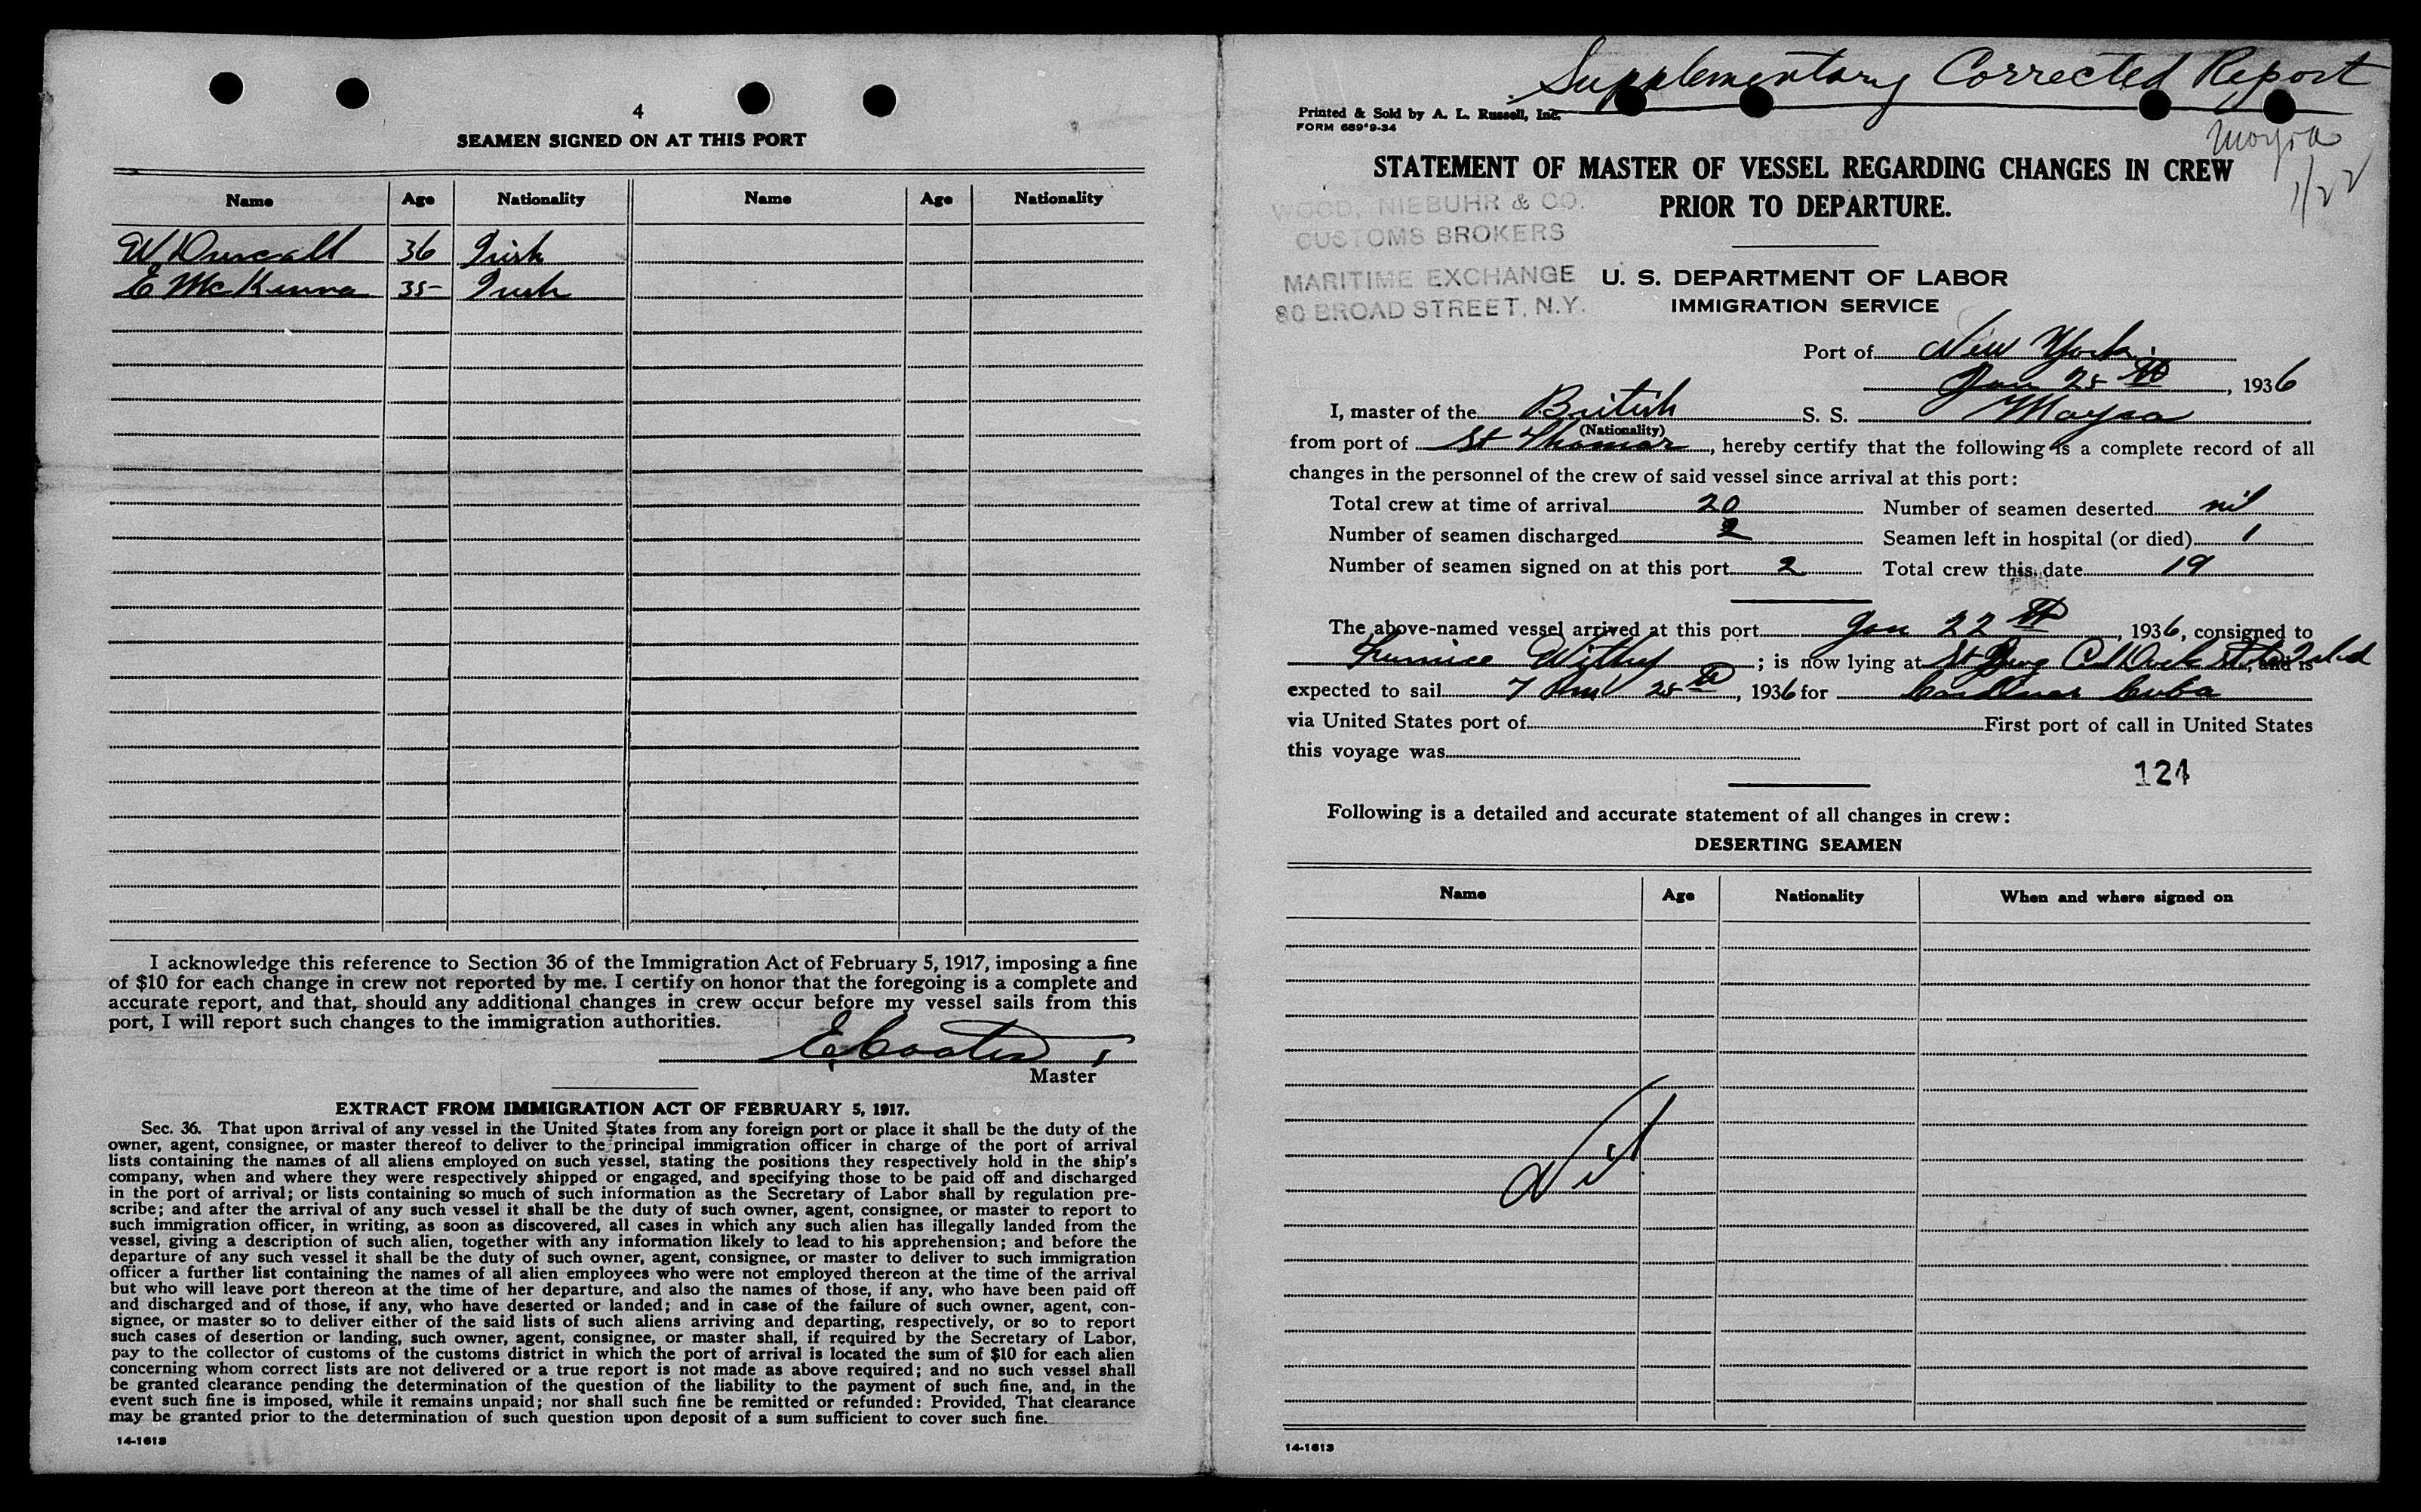 4
SEAMEN SIGNED ON AT THIS PORT
Name Age Nationality Name Age Nationality
W 36 Irish
E McKenna 35 Irish
I acknowledge this reference to Section 36 of the Immigration Act of February 5, 1917, imposing a fine
of $10 for each change in crew not reported by me. I certify on honor that the foregoing is a complete and
accurate report, and that, should any additional changes in crew occur before my vessel sails from this
port, I will report such changes to the immigration authorities.
E Coates
Master
EXTRACT FROM IMMIGRATION ACT OF FEBRUARY 5, 1917.
Sec. 36. That upon arrival of any vessel in the United States from any foreign port or place it shall be the duty of the
owner, agent, consignee, or master thereof to deliver to the principal immigration officer in charge of the port of arrival
lists containing the names of all aliens employed on such vessel, stating the positions they respectively hold in the ship's
company, when and where they were respectively shipped or engaged, and specifying those to be paid off and discharged
in the port of arrival; or lists containing so much of such information as the Secretary of Labor shall by regulation pre-
scribe; and after the arrival of any such vessel it shall be the duty of such owner, agent, consignee, or master to report to
such immigration officer, in writing, as soon as discovered, all cases in which any such alien has illegally landed from the
vessel, giving a description of such alien, together with any information likely to lead to his apprehension; and before the
departure of any such vessel it shall be the duty of such owner, agent, consignee, or master to deliver to such immigration
officer a further list containing the names of all alien employees who were not employed thereon at the time of the arrival
but who will leave port thereon at the time of her departure, and also the names of those, if any, who have been paid off
and discharged and of those, if any, who have deserted or landed; and in case of the failure of such owner, agent, con-
signee, or master so to deliver either of the said lists of such aliens arriving and departing, respectively, or so to report
such cases of desertion or landing, such owner, agent, consignee, or master shall, if required by the Secretary of Labor,
pay to the collector of customs of the customs district in which the port of arrival is located the sum of $10 for each alien
concerning whom correct lists are not delivered or a true report is not made as above required; and no such vessel shall
be granted clearance pending the determination of the question of the liability to the payment of such fine, and, in the
event such fine is imposed, while it remains unpaid; nor shall such fine be remitted or refunded: Provided, That clearance
may be granted prior to the determination of such question upon deposit of a sum sufficient to cover such fine.
14-1613
Supplementary Corrected Report
Printed & Sold by A. L. Russell, Inc.
FORM 689*9-34
Moyra
1/22
STATEMENT OF MASTER OF VESSEL REGARDING CHANGES IN CREW
PRIOR TO DEPARTURE.
WOOD, NIEBUHR & CO.
CUSTOMS BROKERS
MARITIME EXCHANGE
80 BROAD STREET, N.Y.
U. S. DEPARTMENT OF LABOR
IMMIGRATION SERVICE
Port of New York
Jan 25th, 1936
I, master of the British S. S. Moyra
(Nationality)
from port of St Thomas, hereby certify that the following is a complete record of all
changes in the personnel of the crew of said vessel since arrival at this port:
Total crew at time of arrival 20 Number of seamen deserted nil
Number of seamen discharged 2 Seamen left in hospital (or died) 1
Number of seamen signed on at this port 2 Total crew this date 19
The above-named vessel arrived at this port Jan 22th, 1936, consigned to
Furness Withy; is now lying at St, and is
expected to sail 25th, 1936 for Cuba
via United States port of First port of call in United States
this voyage was
124
Following is a detailed and accurate statement of all changes in crew:
DESERTING SEAMEN
Name Age Nationality When and where signed on
Nil
14-1613